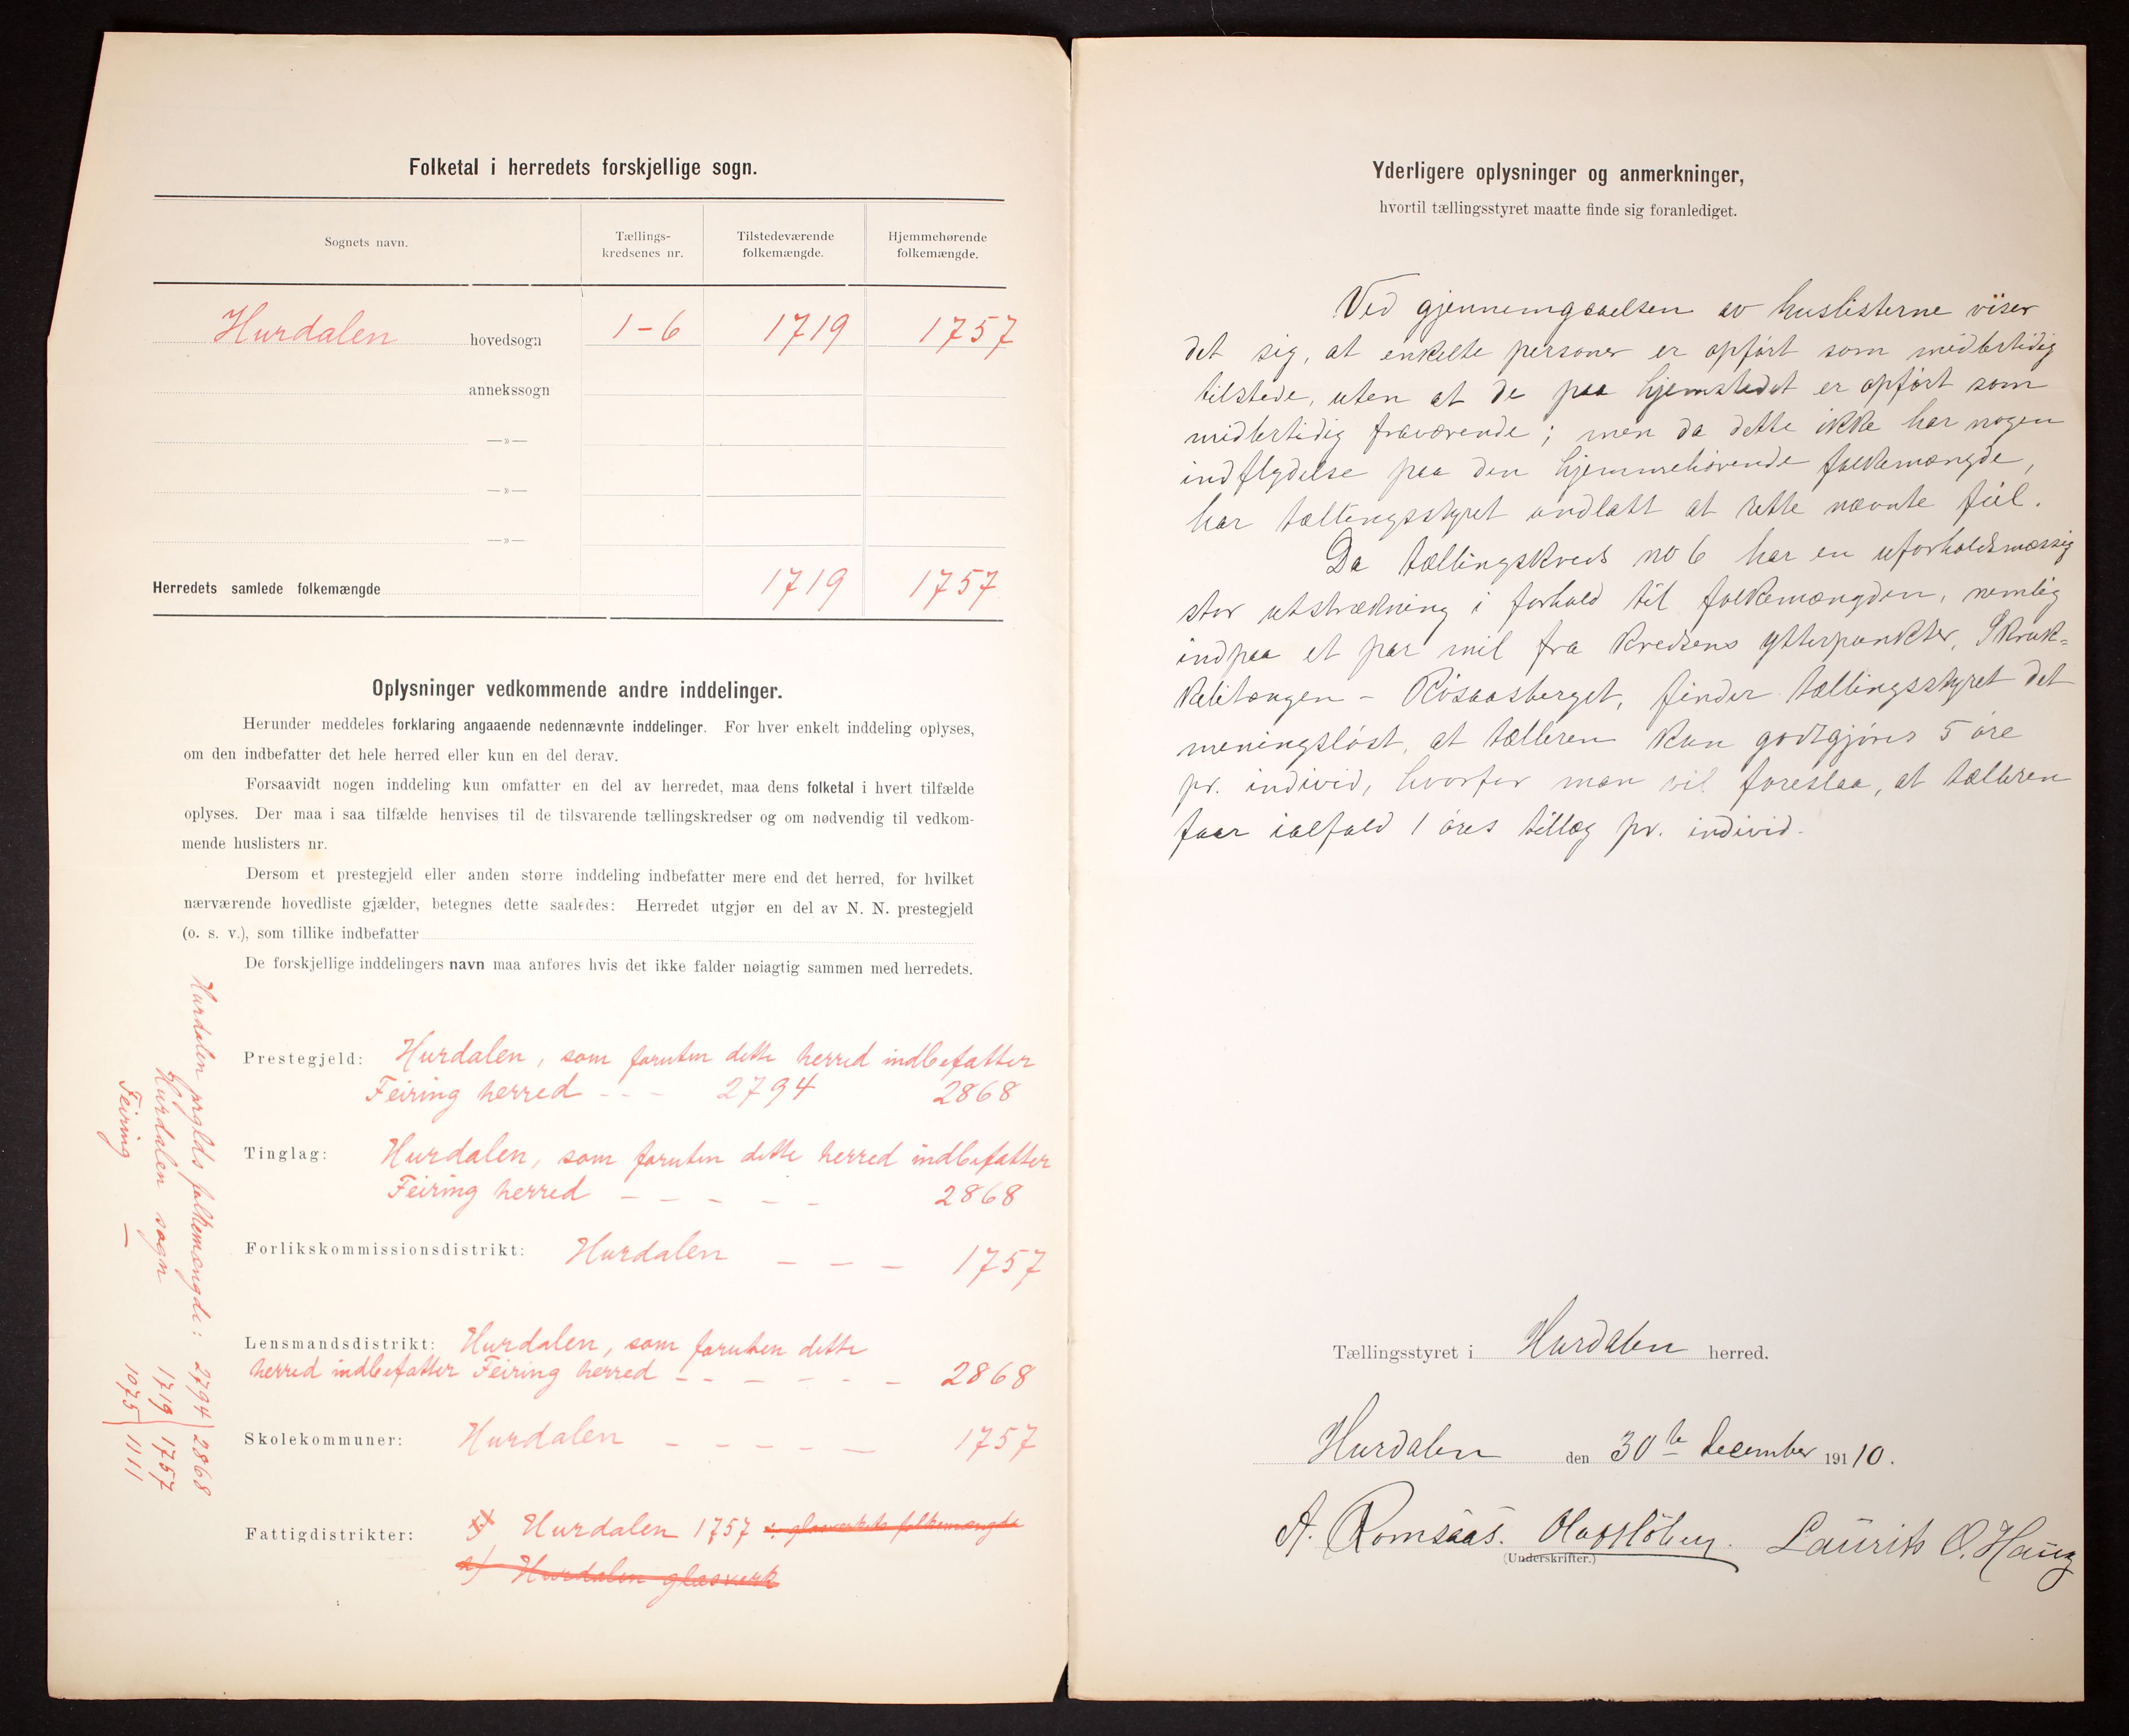 Folketal i herredets forskjellige sogn.
Sognets navn.
Tællings-
kredsenes nr.
Tilstedeværende
folkemængde.
Hjemmehørende
folkemængde.
Hurdalen hovedsogn 1-6 1719 1757
annekssogn
—»—
—»—
—»—
Herredets samlede folkemængde 1719 1757
Oplysninger vedkommende andre inddelinger.
Herunder meddeles forklaring angaaende nedennævnte inddelinger. For hver enkelt inddeling oplyses,
om den indbefatter det hele herred eller kun en del derav.
Forsaavidt nogen inddeling kun omfatter en del av herredet, maa dens folketal i hvert tilfælde
oplyses. Der maa i saa tilfælde henvises til de tilsvarende tællingskredser og om nødvendig til vedkom-
mende huslisters nr.
Dersom et prestegjeld eller anden større inddeling indbefatter mere end det herred, for hvilket
nærværende hovedliste gjælder, betegnes dette saaledes: Herredet utgjør en del av N. N. prestegjeld
(o. s. v.), som tillike indbefatter
De forskjellige inddelingers navn maa anføres hvis det ikke falder nøiagtig sammen med herredets.
Prestegjeld: Hurdalen, som foruten dette herred indbefatter
Feiring herred - - - 2794 2868
Tinglag: Hurdalen, som foruten dette herred indbefatter
Feiring herred — — — — — 2868
Forlikskommissionsdistrikt: Hurdalen — — — 1757
Lensmandsdistrikt: Hurdalen, som foruten dette
herred indbefatter Feiring herred — — — — — — 2868
Skolekommuner: Hurdalen — — — — — 1757
Fattigdistrikter: Hurdalen 1757 ÷ glasverkets folkemængde
a) Hurdalen glasverk
Hurdalen prglds folkemængde: 2794 | 2868
Hurdalen sogn 1719 | 1757
Feiring — 1075 | 1111
Yderligere oplysninger og anmerkninger,
hvortil tællingsstyret maatte finde sig foranlediget.
Ved gjennemgaaelsen av huslisterne viser
det sig, at enkelte personer er opført som midlertidig
tilstede, uten at de paa hjemstedet er opført som
midlertidig fraværende; men da dette ikke har nogen
indflydelse paa den hjemmehørende folkemængde,
har tællingsstyret undlatt at rette nævnte feil.
Da tællingskreds no 6 har en uforholdsmæssig
stor utstrækning i forhold til folkemængden, nemlig
indpaa et par mil fra kredsens ytterpunkter, Skruk-
kelitangen – Røsaasberget, finder tællingsstyret det
meningsløst, at tælleren kun godtgjøres 5 øre
pr. individ, hvorfor man vil foreslaa, at tælleren
faar ialfald 1 øres tillæg pr. individ.
Tællingsstyret i Hurdalen herred.
Hurdalen den 30te december 1910.
A. Romsaas. Laurits O. Haug
(Underskrifter.)